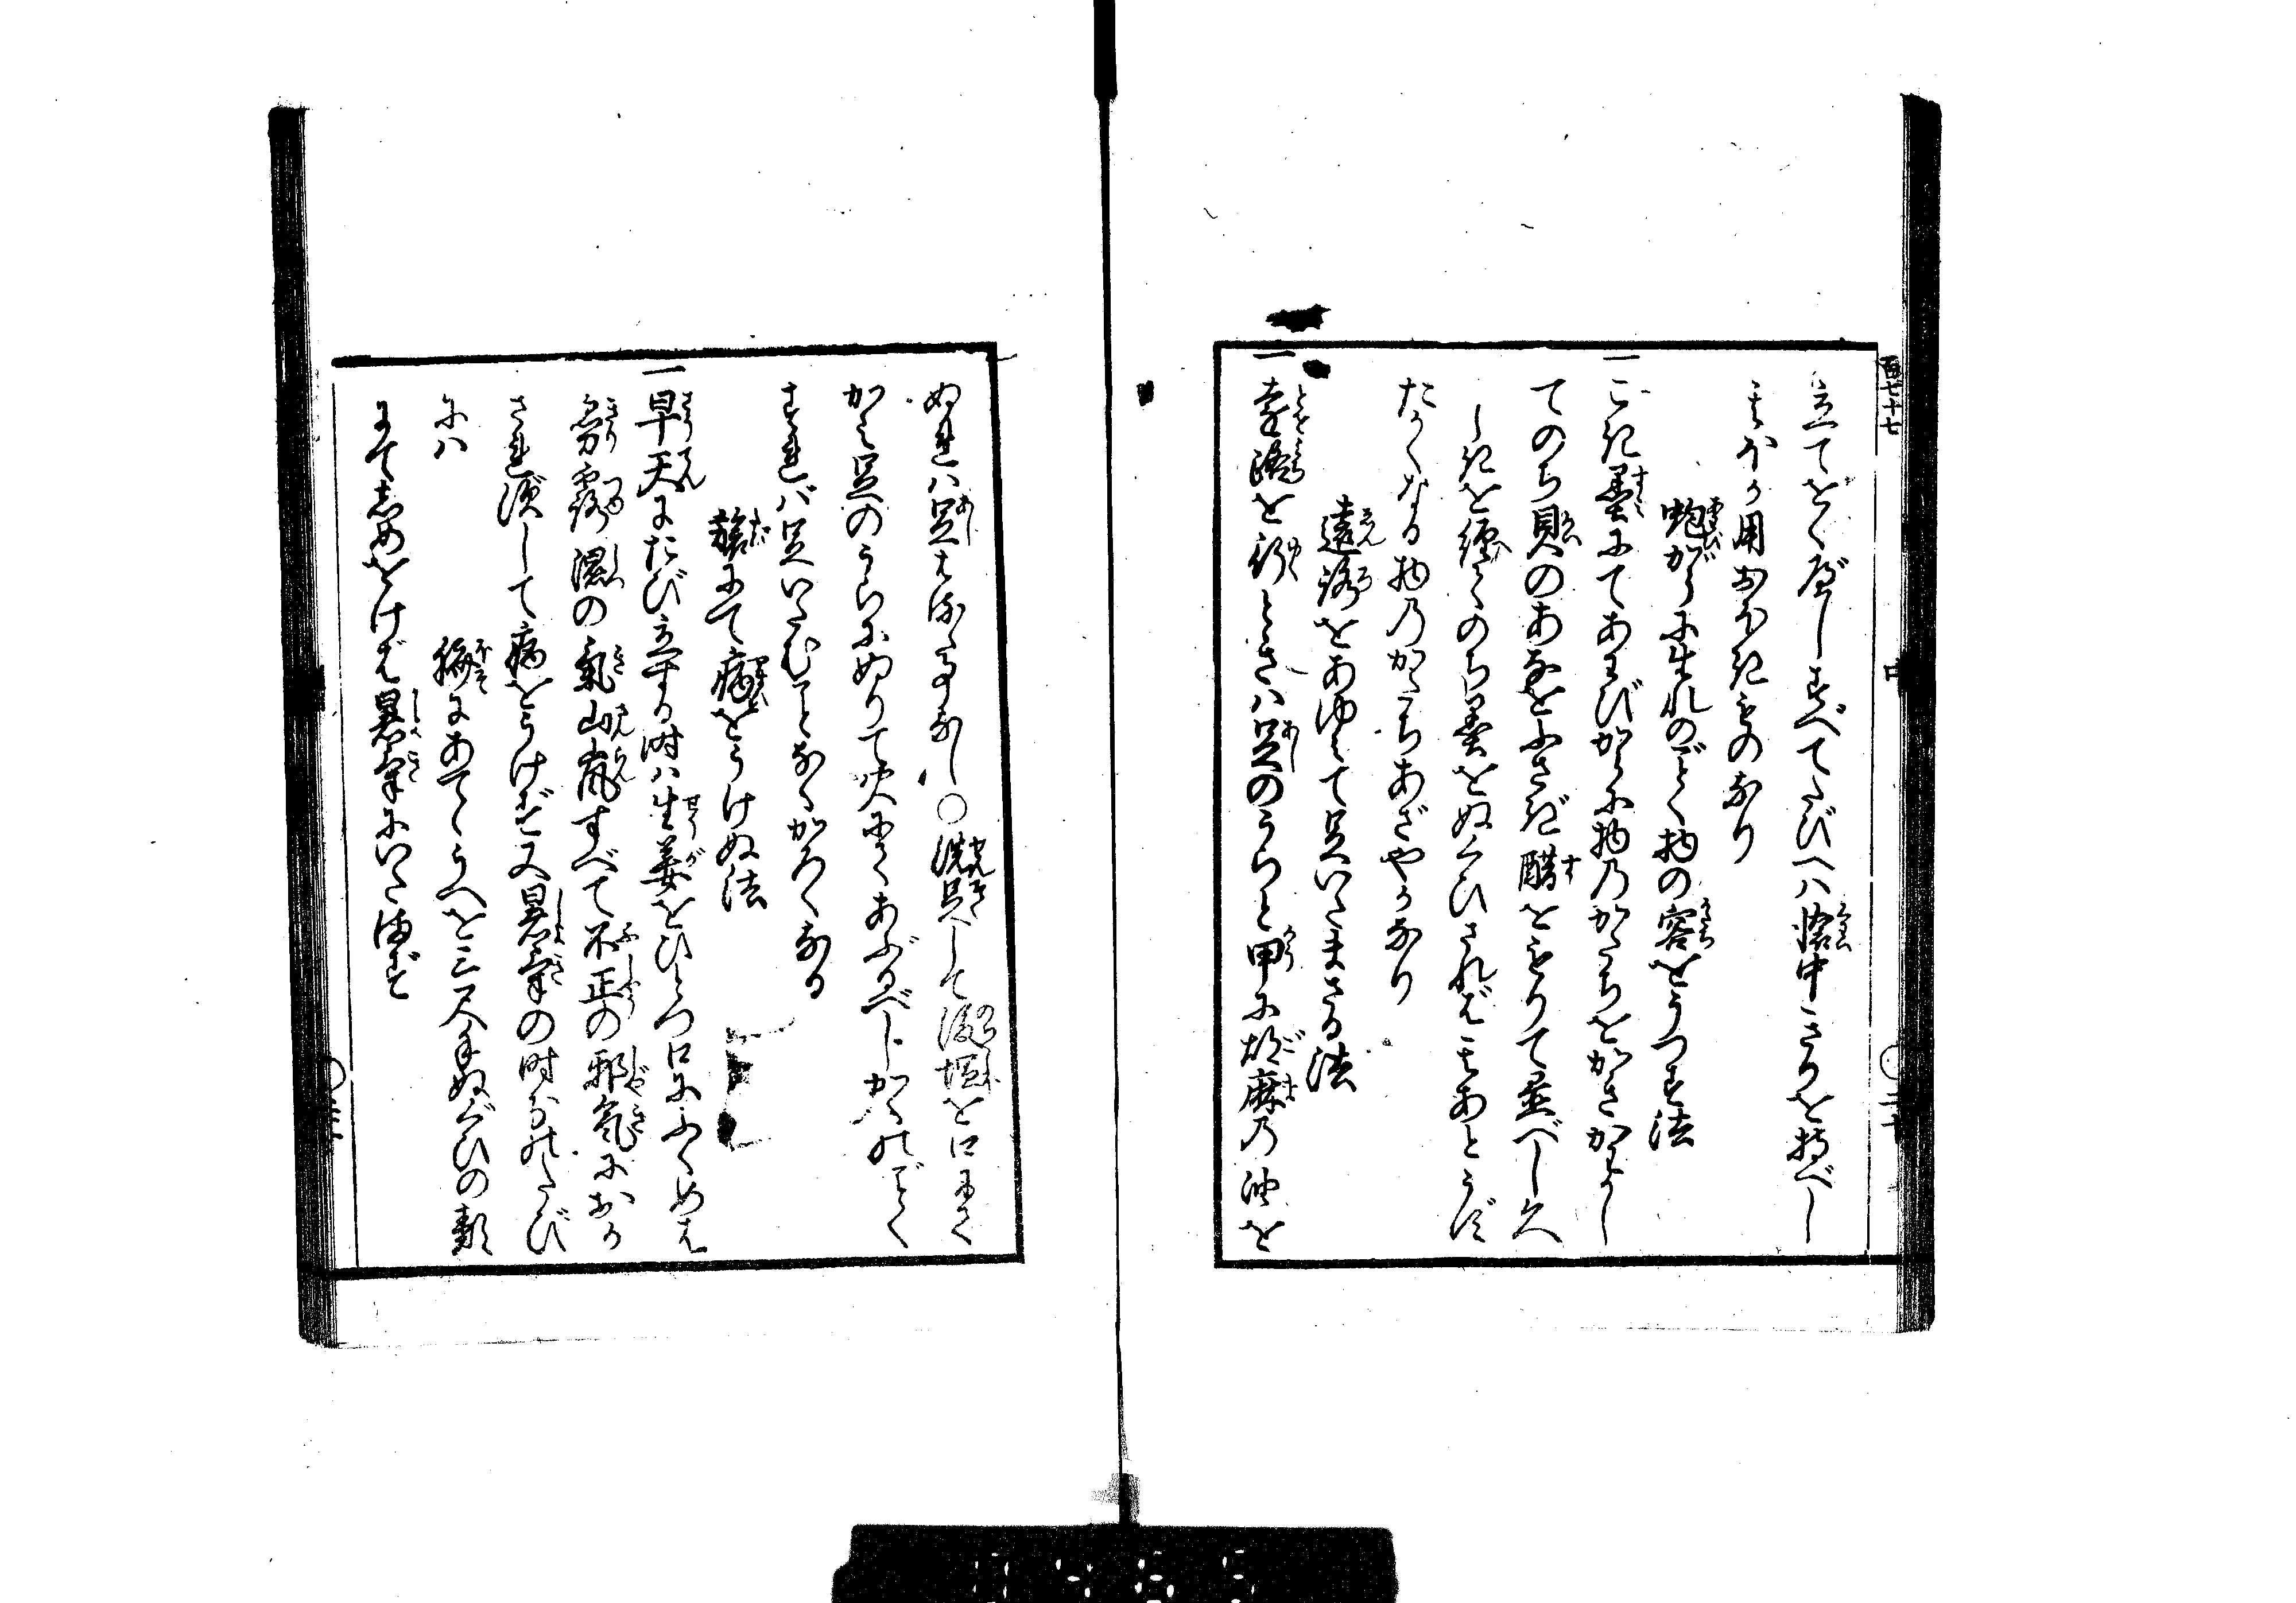 立てをくべしすべてたびへは懐中きりを持べし
其ほか用おほきものなり
鮑がらに生れのごとく物の容をうつす法
一こき墨にてあわびがらに物のかたちをかきかわかし
てのち貝のあなをふさぎ醋をもりて置べし久
しきを経てのち墨をぬぐひされば其あとうず
たかくなる物のかたちあざやかなり
遠路をあゆみて足いたまざる法
一遠路を行ときは足のうらと甲に胡麻の油を
ぬれば足はるゝ事なし〇洗足して後塩を口にて
かみ足のうらにぬりて火にてあぶるべしかくのごとく
すれば足いたむことなくかろくなる
旅にて病をうけぬ法
一早天にたび立する時は生姜をひとつ口にふくめば
霧露湿の気山嵐すべて不正の邪気におか
されずして病をうけず又暑気の時分のたび
には　臍にあてゝうへを三尺手ぬぐひの類
にてしめをけば暑気にいたまず
百七十七
中